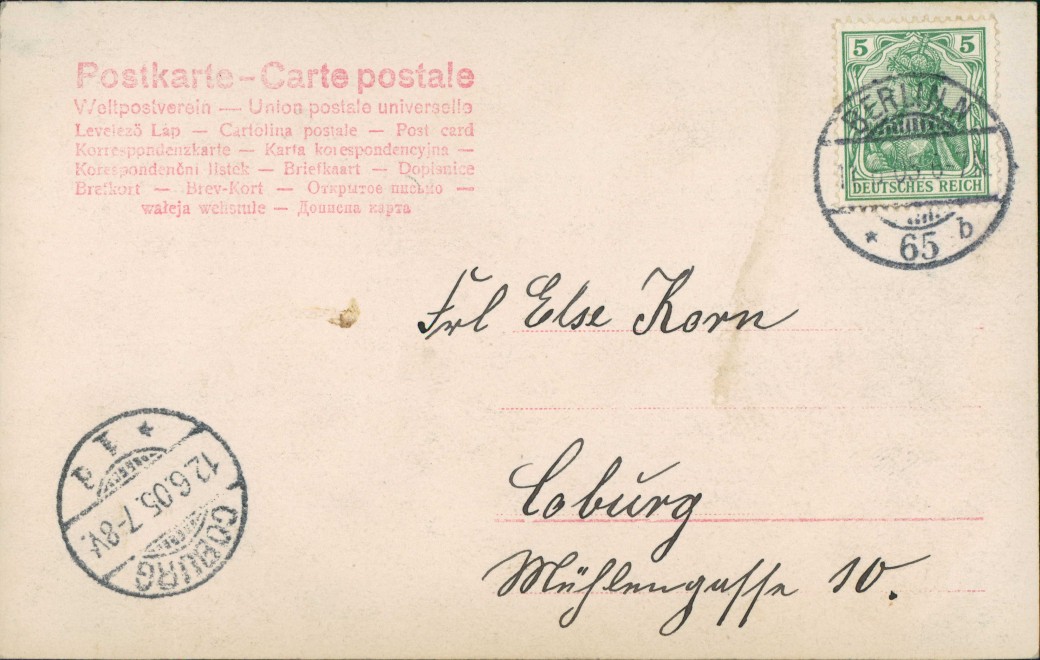 Postkarte – Carte postale
Weltpostverein — Union postale universelle
Levelező Lap — Cartolina postale — Post card
Korrespondenzkarte — Karta korespondencyjna —
Korespondenční lístek — Briefkaart — Dopisnice
Brefkort — Brev-Kort — Открытое письмо —
5 5
DEUTSCHES REICH
BERLIN, N
65 b
Frl Else Korn
Coburg
Mühlengasse 10.
COBURG
12.6.05. 7-8V.